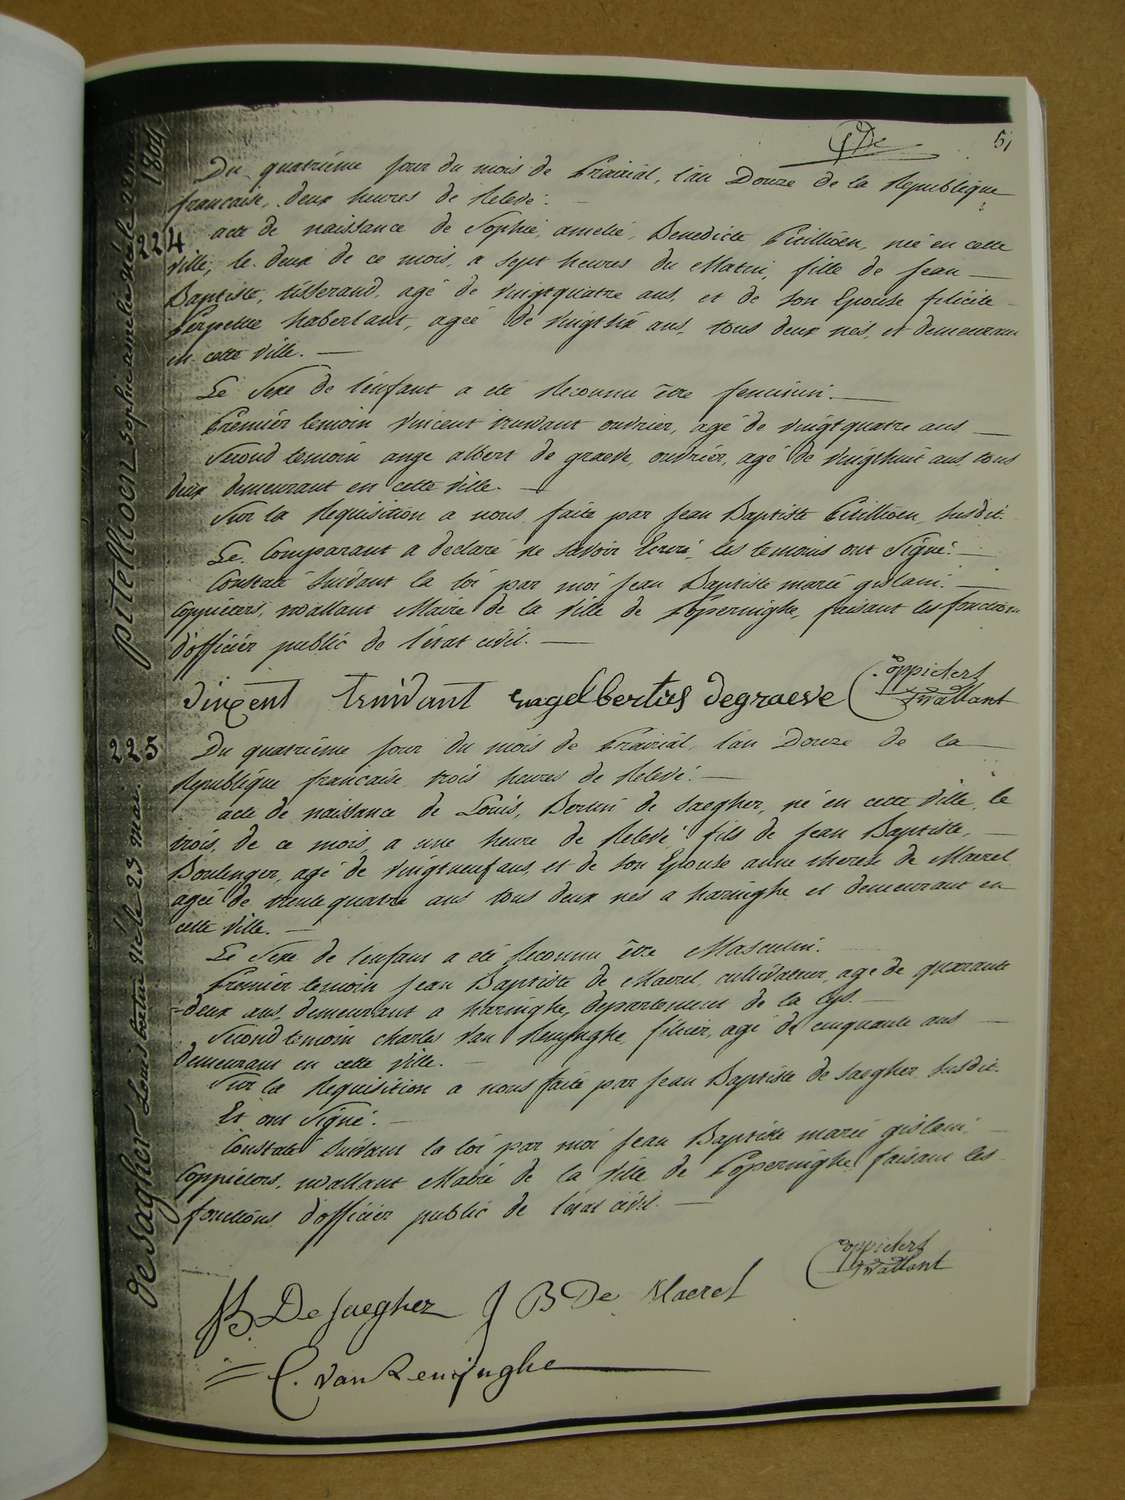 51
Du quatriéme jour du mois de Prairial, l'an Douze de la République
francaise, deux heures de Relevé.
224
acte de naissance de Sophie, amelie, Benedicte Pitillioen, née en cette
ville, le deux de ce mois, a sept heures du Matin, fille de Jean
Baptiste, tisserand, agé de vingtquatre ans, et de son Epouse felicité
Perpetue haberlant, ageé de vingtsix ans, tous deux nés, et demeuran
en cette ville.
Le Sexe de l'enfant a été Reconnu être feminin.
Prémiér temoin vincent truwant ouvrier, agé de vingtquatre ans
Second temoin ange albert de graeve, ouvriér, agé de vingthuit ans, tous
deux demeurant en cette ville.
Sur la Requisition a nous faite par Jean Baptiste Pitillioen susdit.
Le Comparant a declaré ne savoir Ecrire, les temoins ont Signé.
Constaté suivant la loi par moi Jean Baptiste marie gislain
Coppieters, wallant Maire de la ville de Poperinghe, faisant les fonction
d'officiér public de l'état civil.
vinsent truwant engelbertus degraeve Coppieters
Wallant
225
Du quatriéme jour du mois de Prairial, l'an Douze de la
République francaise, trois heures de Relevé.
acte de naissance de Louis, Bertin de Saegher, né en cette ville, le
trois, de ce mois, a une heure de Relevé, fils de Jean Baptiste,
Boulenger, agé de vingtneuf ans, et de son Epouse anne therese de Maerel
ageé de trente quatre ans tous deux nés a haringhe et demeurant en
cette ville.
Le Sexe de l'enfant a été Reconnu être Masculin.
Prémiér temoin Jean Baptiste de Maerel, cultivateur, age de quarante
-deux ans, demeurant a haringhe, departement de la Lys.
Second temoin charles van Renynghe, filtier, agé de cinquante ans
demeurant en cette ville.
Sur la Requisition a nous faite par Jean Baptiste de Saegher susdit.
Et ont Signé.
Constaté Suivant la loi par moi Jean Baptiste marie gislain
Coppieters, wallant Maire de la ville de Poperinghe, faisant les
fonctions d'officiér public de l'état civil.
Coppieters
Wallant
JB De Saegher J B De Maerel
C. van Renynghe
1804
pitellioen sophie amelie née le 22
de sagher Louis bertin né le 23 mai.